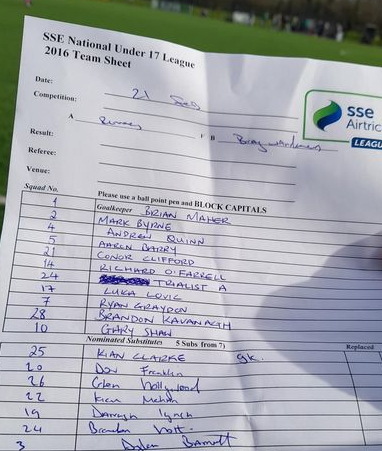 SSE National Under 17 League
2016 Team Sheet
sse
Airtric
LEAGU
Date:
Competition: 21 Sep
A v B Bray wanderers
Result:
Referee:
Venue:
Squad No. Please use a ball point pen and BLOCK CAPITALS
1 Goalkeeper BRIAN MAHER
2 MARK BYRNE
4 ANDREW QUINN
5 AARON BARRY
21 CONOR CLIFFORD
14 RICHARD O'FARRELL
24 TRIALIST A
17 LUKA LOVIC
7 RYAN GRAYDON
28 BRANDON KAVANAGH
10 GARY SHAW
Nominated Substitutes 5 Subs from 7) Replaced
25 KIAN CLARKE gk.
20 Don Franklin
26 Glen Hollywood
22
19 Darragh Lynch
24 Brandon
3 Dylan Barnett